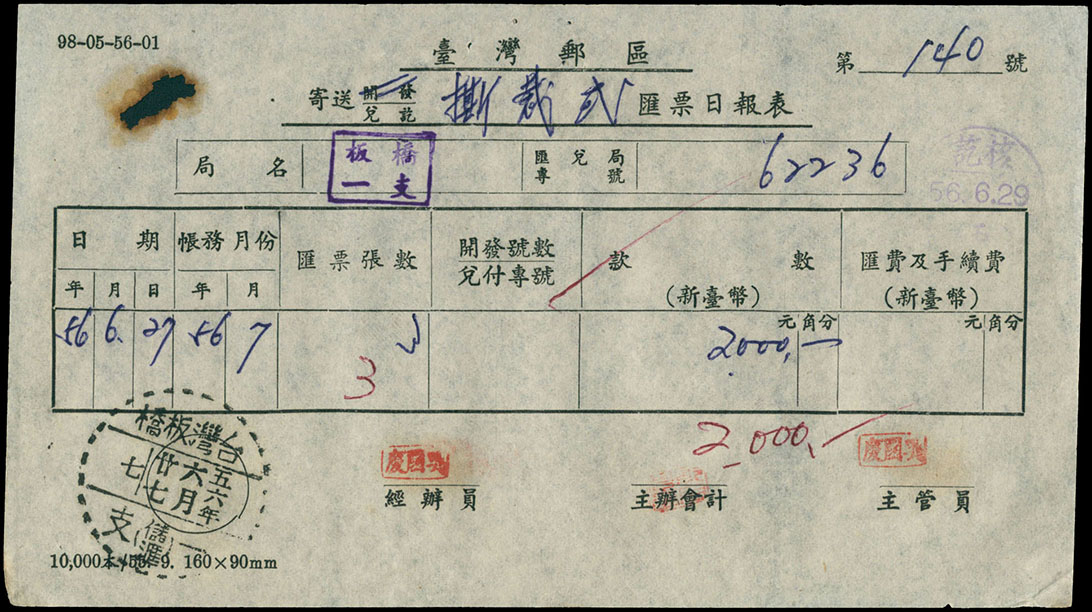 98-05-56-01
臺灣郵區
第 140 號
寄送 開發 兌訖 撕裁式 匯票日報表
局名 板橋一支 匯兌局專號 62236
核訖
56.6.29
日期 帳務月份 匯票張數 開發號數 兌付專號 款數 (新臺幣) 匯費及手續費 (新臺幣)
年 月 日 年 月
元 角 分 元 角 分
56 6. 27 56 7 2000,一
3
2,000,-
台灣板橋
五六年六月廿七
七
一支
(儲匯)
國慶 國慶
經辦員 主辦會計 主管員
10,000本/55. 9. 160×90mm